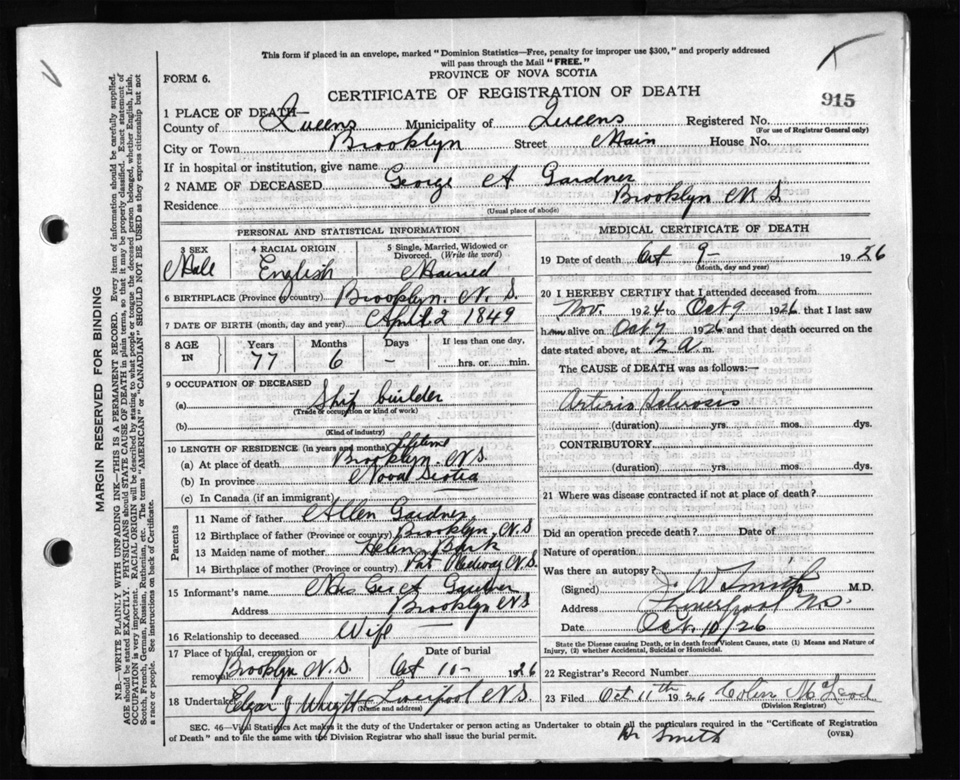 This form if placed in an envelope, marked "Dominion Statistics—Free, penalty for improper use $300," and properly addressed
will pass through the Mail "FREE."
FORM 6.
PROVINCE OF NOVA SCOTIA
CERTIFICATE OF REGISTRATION OF DEATH
915
1 PLACE OF DEATH—
County of Queens Municipality of Queens Registered No.
(For use of Registrar General only)
City or Town Brooklyn Street Main House No.
If in hospital or institution, give name
2 NAME OF DECEASED George A Gardner
Residence Brooklyn N S
(Usual place of abode)
PERSONAL AND STATISTICAL INFORMATION
3 SEX Male
4 RACIAL ORIGIN English
5 Single, Married, Widowed or Divorced. (Write the word) Married
6 BIRTHPLACE (Province or country) Brooklyn. N. S.
7 DATE OF BIRTH (month, day and year) April 2 1849
8 AGE IN Years Months Days If less than one day,
77 6 – hrs. or min.
9 OCCUPATION OF DECEASED
(a) Ship builder
(Trade or occupation or kind of work)
(b)
(Kind of industry)
10 LENGTH OF RESIDENCE (in years and months) lifetime
(a) At place of death Brooklyn N.S.
(b) In province Nova Scotia
(c) In Canada (if an immigrant)
Parents
11 Name of father Allen Gardner
12 Birthplace of father (Province or country) Brooklyn, N.S
13 Maiden name of mother Helen
14 Birthplace of mother (Province or country) Port Medway N.S.
15 Informant's name Mrs Geo A Gardner
Address Brooklyn N S
16 Relationship to deceased Wife
17 Place of burial, cremation or removal Brooklyn N.S. Date of burial Oct 10– 1926
18 Undertaker Edgar J Wright Liverpool N.S.
(Name and address)
MEDICAL CERTIFICATE OF DEATH
19 Date of death Oct 9– 1926
(Month, day and year)
20 I HEREBY CERTIFY that I attended deceased from
Nov. 1924 to Oct 9 1926 that I last saw
him alive on Oct 7 1926 and that death occurred on the
date stated above, at 2 a. m.
The CAUSE of DEATH was as follows:—
Arterio Sclerosis
(duration) yrs. mos. dys.
CONTRIBUTORY
(duration) yrs. mos. dys.
21 Where was disease contracted if not at place of death?
Did an operation precede death? Date of
Nature of operation
Was there an autopsy?
(Signed) J. W Smith M.D.
Address Liverpool N.S.
Date Oct. 10/26
State the Disease causing Death, or in death from Violent Causes, state (1) Means and Nature of
Injury, (2) whether Accidental, Suicidal or Homicidal.
22 Registrar's Record Number
23 Filed Oct 11th 1926 Colin McLeod
(Division Registrar)
SEC. 46—Vital Statistics Act makes it the duty of the Undertaker or person acting as Undertaker to obtain all the particulars required in the "Certificate of Registration
of Death" and to file the same with the Division Registrar who shall issue the burial permit.
(OVER)
Dr Smith
MARGIN RESERVED FOR BINDING
N.B.—WRITE PLAINLY WITH UNFADING INK—THIS IS A PERMANENT RECORD. Every item of information should be carefully supplied.
AGE should be stated EXACTLY. PHYSICIANS should STATE CAUSE OF DEATH in plain terms, so that it may be properly classified. Exact statement of
OCCUPATION is very important. RACIAL ORIGIN will be described by stating to what people or tongue the deceased person belonged, whether English, Irish,
Scotch, French, German, Russian, Ruthenian, etc. The terms "AMERICAN" or "CANADIAN" SHOULD NOT BE USED as they express citizenship but not
a race or people. See instructions on back of Certificate.